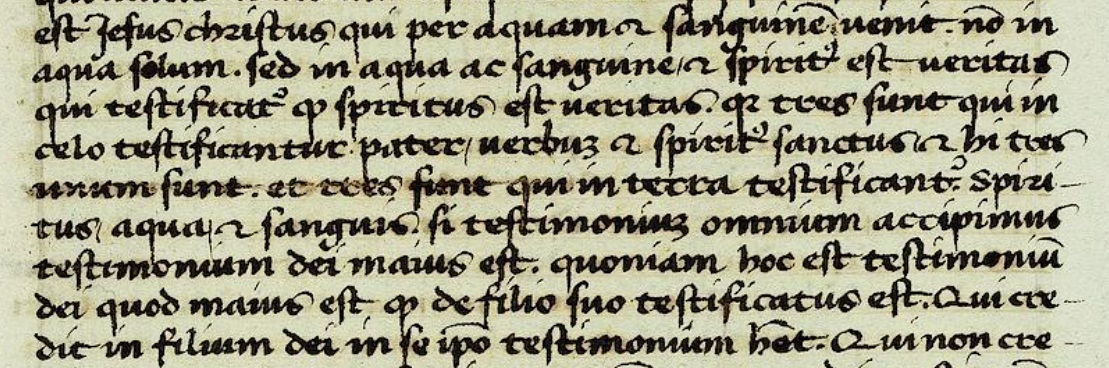 est Jesus christus qui per aquam ⁊ sanguinē venit. nō in
aqua solum. sed in aqua ac sanguine, ⁊ spiritꝰ est veritas
qui testificatꝰ ꝙ spiritus est veritas. qꝛ tres sunt qui in
celo testificantur. pater, verbuꝫ ⁊ spiritꝰ sanctus, ⁊ hi tres
unum sunt. et tres sunt qui in terra testificantꝰ. Spiri-
tus, aqua, ⁊ sanguis. si testimoniuꝫ omnium accipimus
testimonium dei maius est. quoniam hoc est testimoniū
dei quod maius est ꝙ de filio suo testificatus est. Qui cre-
dit in filium dei in se ipō testimonium hēt. Qui non cre-